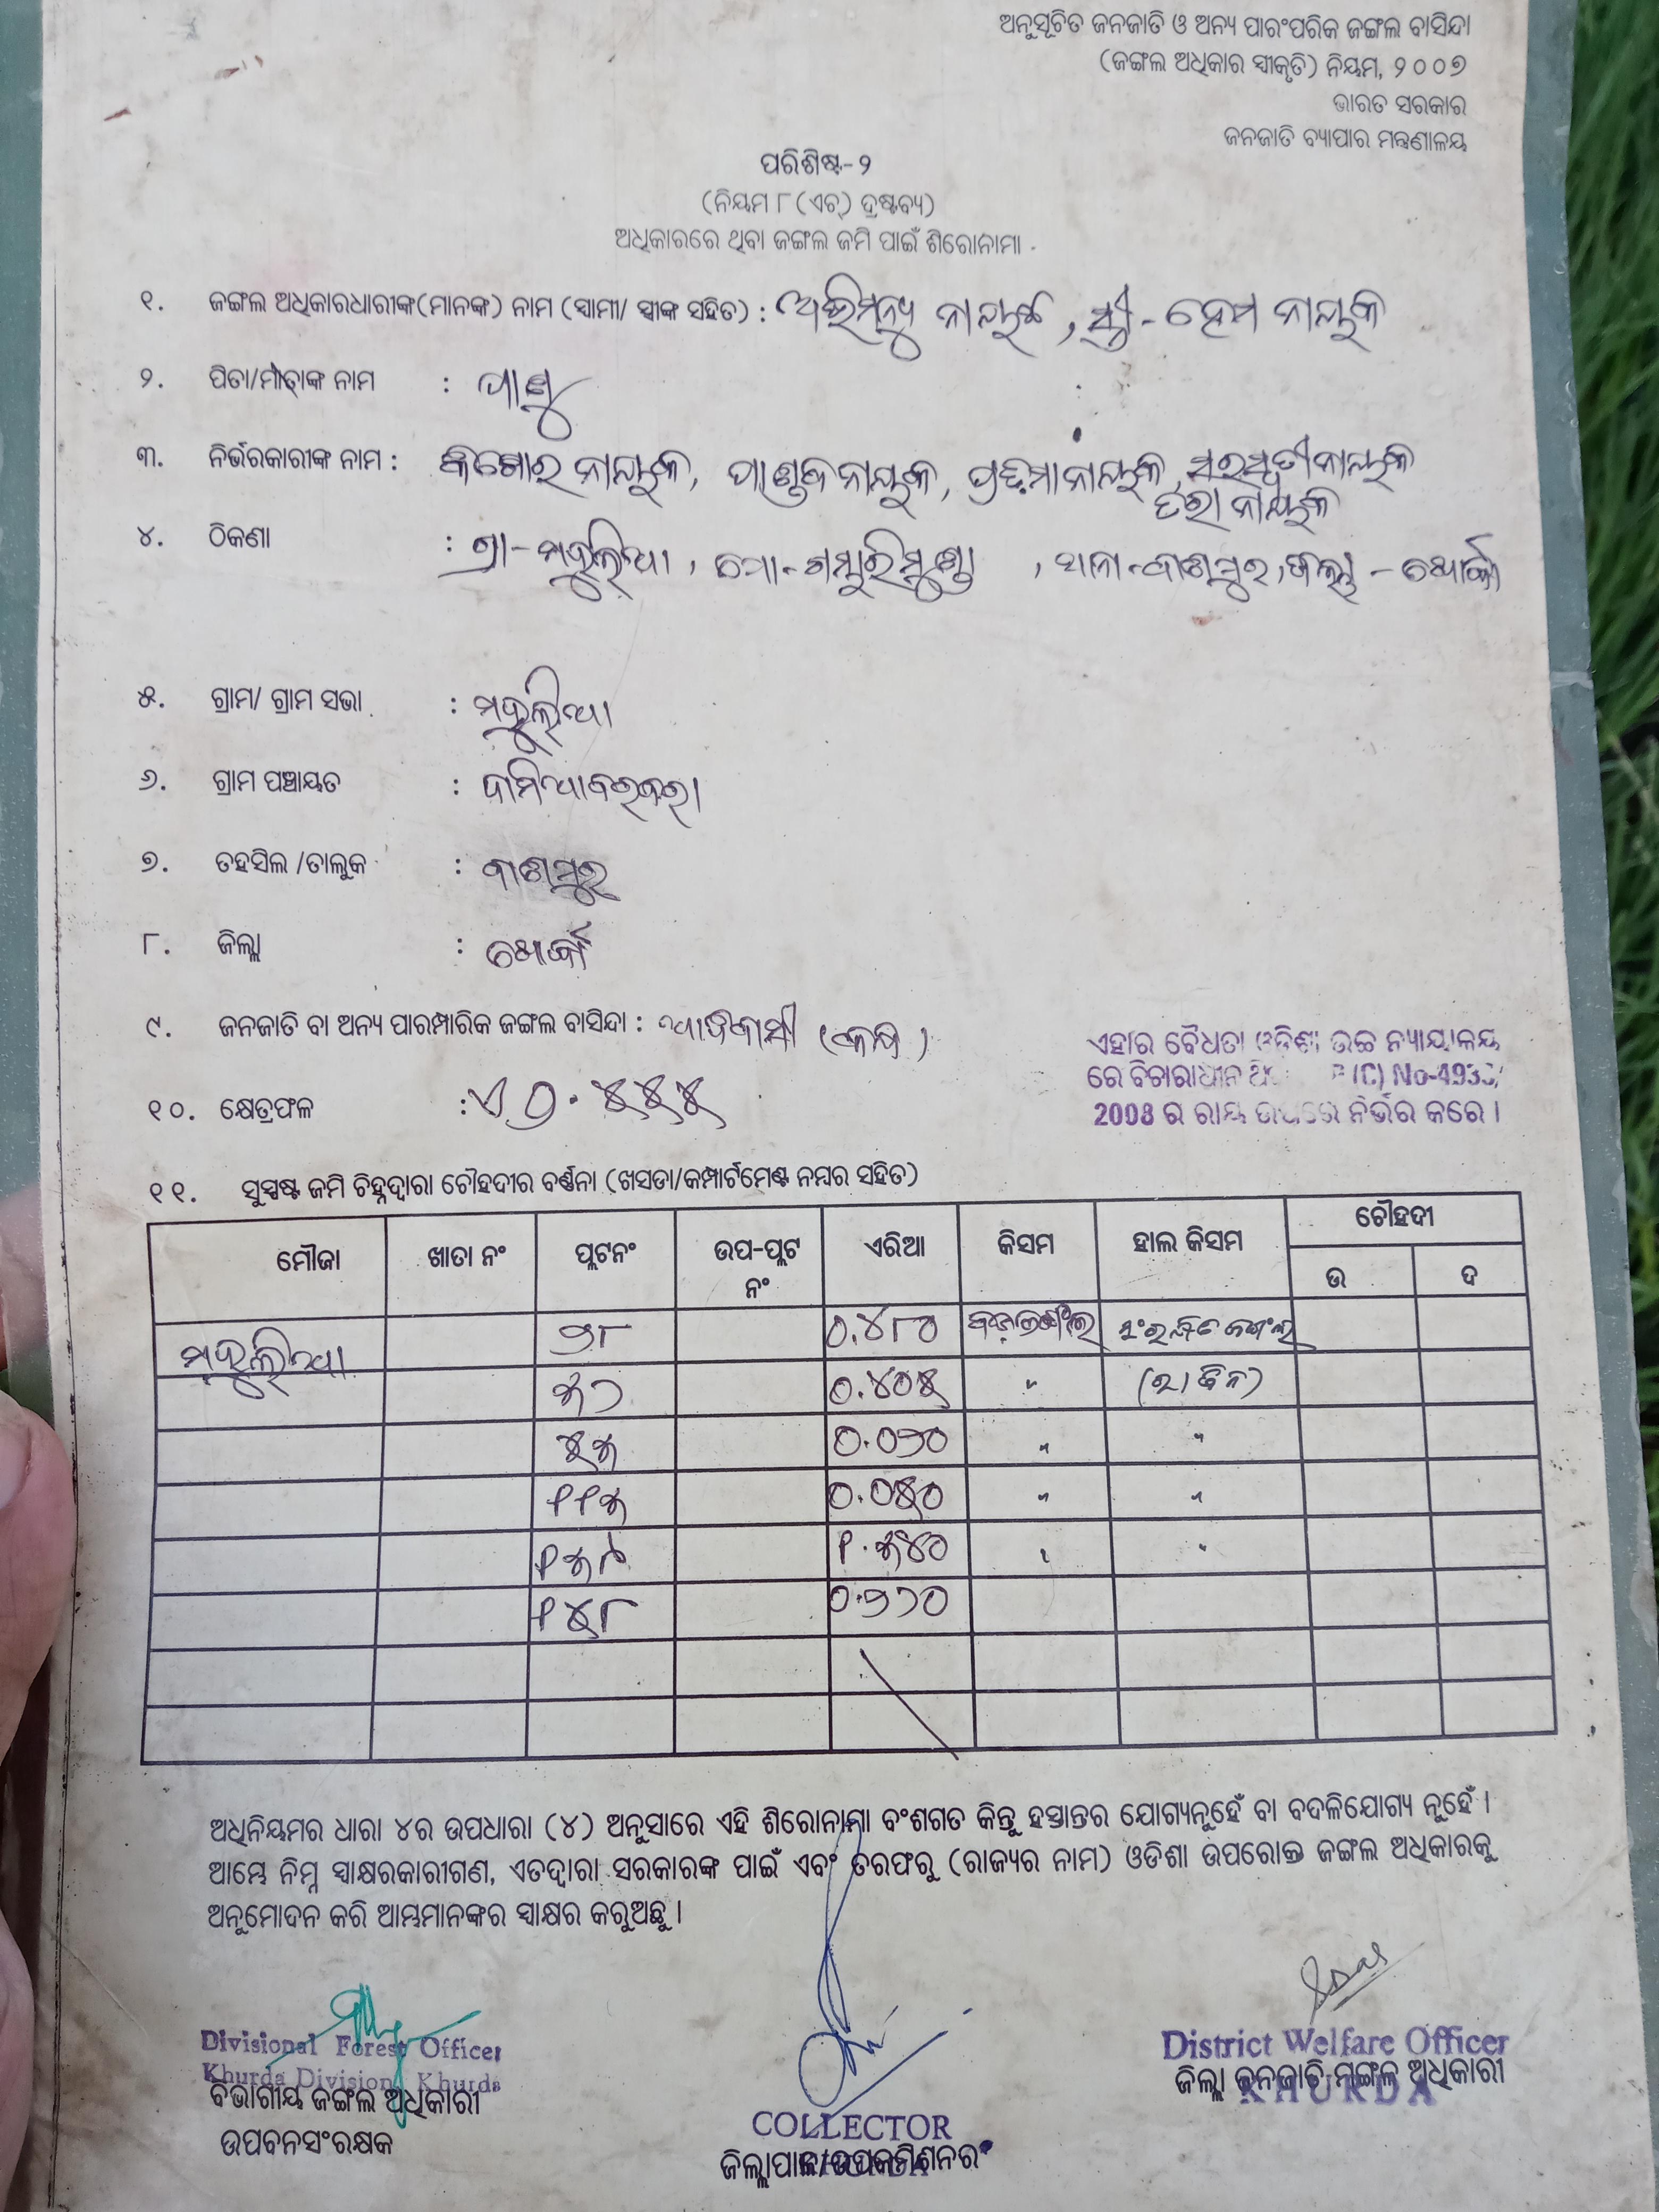 ଅନୁସୂଚିତ ଜନଜାତି ଓ ଅନ୍ୟ ପାରଂପରିକ ଜଙ୍ଗଲ ବାସିନ୍ଦା
(ଜଙ୍ଗଲ ଅଧିକାର ସ୍ୱୀକୃତି) ନିୟମ, ୨୦୦୭
ଭାରତ ସରକାର
ଜନଜାତି ବ୍ୟାପାର ମନ୍ତ୍ରଣାଳୟ
ପରିଶିଷ୍ଟ-୨
(ନିୟମ ୮ (ଏଚ୍) ଦ୍ରଷ୍ଟବ୍ୟ)
ଅଧିକାରରେ ଥିବା ଜଙ୍ଗଲ ଜମି ପାଇଁ ଶିରୋନାମା
୧. ଜଙ୍ଗଲ ଅଧିକାରଧାରୀଙ୍କ(ମାନଙ୍କ) ନାମ (ସ୍ୱାମୀ/ ସ୍ତ୍ରୀଙ୍କ ସହିତ) : ଅଭିମନ୍ୟୁ ନାୟକ, ସ୍ତ୍ରୀ - ହେମ ନାୟକ
୨. ପିତା/ମାତାଙ୍କ ନାମ : ପାଣୁ
୩. ନିର୍ଭରକାରୀଙ୍କ ନାମ : କିଶୋର ନାୟକ, ପାଣ୍ଡବ ନାୟକ, ନାୟକ, ସରସ୍ୱତୀ ନାୟକ
ନାୟକ
୪. ଠିକଣା : ଗ୍ରା - ମଜୁଲିଆ, ପୋ - ଗମ୍ଭାରିମୁଣ୍ଡା, ଥାନା - ବାଣପୁର, ଜିଲ୍ଲା - ଖୋର୍ଦ୍ଧା
୫. ଗ୍ରାମ/ ଗ୍ରାମ ସଭା : ମଜୁଲିଆ
୬. ଗ୍ରାମ ପଞ୍ଚାୟତ : ଦାମିଆବରବରା
୭. ତହସିଲ /ତାଲୁକ : ବାଣପୁର
୮. ଜିଲ୍ଲା : ଖୋର୍ଦ୍ଧା
୯. ଜନଜାତି ବା ଅନ୍ୟ ପାରମ୍ପାରିକ ଜଙ୍ଗଲ ବାସିନ୍ଦା : ଆଦିବାସୀ (କନ୍ଧ)
ଏହାର ବୈଧତା ଓଡ଼ିଶା ଉଚ୍ଚ ନ୍ୟାୟାଳୟ
ରେ ବିଚାରାଧୀନ (C) No-4933/
2008 ର ରାୟ ଉପରେ ନିର୍ଭର କରେ ।
୧୦. କ୍ଷେତ୍ରଫଳ :
୧୧. ସୁସ୍ପଷ୍ଟ ଜମି ଚିହ୍ନଦ୍ୱାରା ଚୌହଦୀର ବର୍ଣ୍ଣନା (ଖସଡା/କମ୍ପାର୍ଟମେଣ୍ଟ ନମ୍ବର ସହିତ)
ମୌଜା ଖାତା ନଂ ପ୍ଲଟନଂ ଉପ-ପ୍ଲଟ ନଂ ଏରିଆ କିସମ ହାଲ କିସମ ଚୌହଦୀ
ଉ ଦ
ମଜୁଲିଆ ୨୮ ୦.୪୮୦ ସଂରକ୍ଷିତ ଜଙ୍ଗଲ
୩୨ ୦.୪୦୫ "
୫୩ ୦.୦୨୦ " "
୧୧୩ ୦.୦୫୦ " "
୧୩୯ ୧.୩୪୦ " "
୧୫୮
ଅଧିନିୟମର ଧାରା ୪ର ଉପଧାରା (୪) ଅନୁସାରେ ଏହି ଶିରୋନାମା ବଂଶଗତ କିନ୍ତୁ ହସ୍ତାନ୍ତର ଯୋଗ୍ୟନୁହେଁ ବା ବଦଳିଯୋଗ୍ୟ ନୁହେଁ ।
ଆମ୍ଭେ ନିମ୍ନ ସ୍ୱାକ୍ଷରକାରୀଗଣ, ଏତଦ୍ୱାରା ସରକାରଙ୍କ ପାଇଁ ଏବଂ ତରଫରୁ (ରାଜ୍ୟର ନାମ) ଓଡିଶା ଉପରୋକ୍ତ ଜଙ୍ଗଲ ଅଧିକାରକୁ
ଅନୁମୋଦନ କରି ଆମ୍ଭମାନଙ୍କର ସ୍ୱାକ୍ଷର କରୁଅଛୁ ।
Divisional Forest Officer
Khurda Division, Khurda
ବିଭାଗୀୟ ଜଙ୍ଗଲ ଅଧିକାରୀ
ଉପବନସଂରକ୍ଷକ
COLLECTOR
ଜିଲ୍ଲାପାଳ/ଉପକମିଶନର
District Welfare Officer
ଜିଲ୍ଲା ଜନଜାତି ମଙ୍ଗଳ ଅଧିକାରୀ
KHURDA